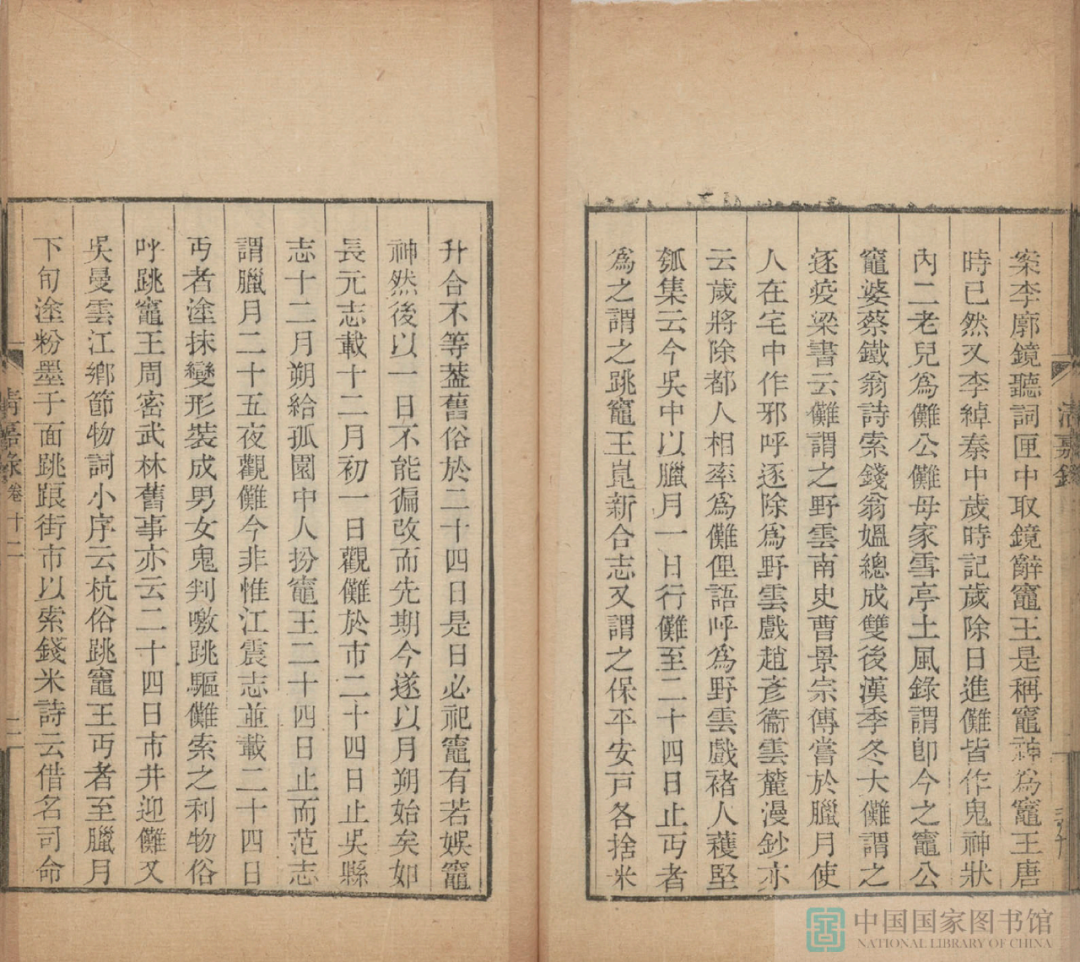 案李廓鏡聽詞匣中取鏡辭竈王是稱竈神爲竈王唐
時已然又李綽秦中歲時記歲除日進儺皆作鬼神狀
內二老兒爲儺公儺母家雪亭土風錄謂卽今之竈公
竈婆蔡鐵翁詩索錢翁媼總成雙後漢季冬大儺謂之
逐疫梁書云儺謂之野雲南史曹景宗傳嘗於臘月使
人在宅中作邪呼逐除爲野雲戲趙彥衞雲麓漫鈔亦
云歲將除都人相率爲儺俚語呼爲野雲戲褚人穫堅
瓠集云今吳中以臘月一日行儺至二十四日止丐者
爲之謂之跳竈王崑新合志又謂之保平安戸各捨米
清嘉錄
升合不等葢舊俗於二十四日是日必祀竈有若娛竈
神然後以一日不能徧改而先期今遂以月朔始矣如
長元志載十二月初一日觀儺於市二十四日止吳縣
志十二月朔給孤園中人扮竈王二十四日止而范志
謂臘月二十五夜觀儺今非惟江震志並載二十四日
丐者塗抹變形裝成男女鬼判噭跳驅儺索之利物俗
呼跳竈王周密武林舊事亦云二十四日市井迎儺又
吳曼雲江鄉節物詞小序云杭俗跳竈王丐者至臘月
下旬塗粉墨于面跳踉街市以索錢米詩云借名司命
清嘉錄 卷十二 二
中国国家图书馆
NATIONAL LIBRARY OF CHINA